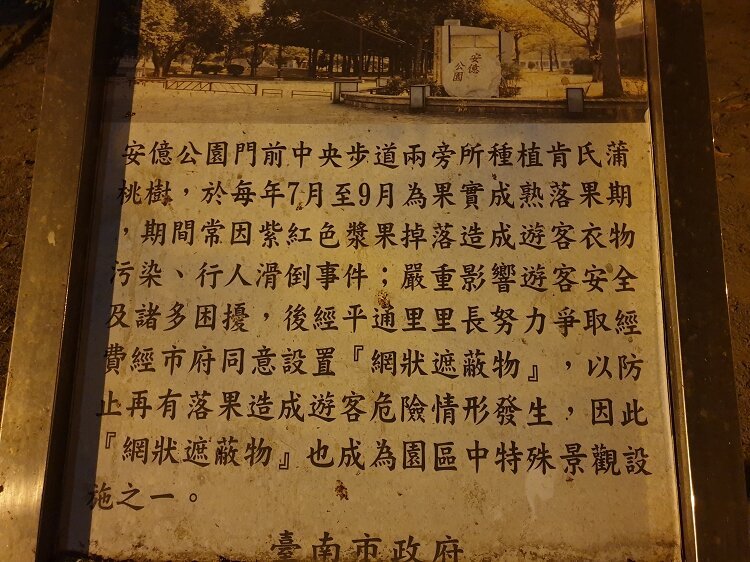 安億
公園
安億公園門前中央步道兩旁所種植肯氏蒲
桃樹，於每年7月至9月為果實成熟落果期
，期間常因紫紅色漿果掉落造成遊客衣物
污染、行人滑倒事件；嚴重影響遊客安全
及諸多困擾，後經平通里里長努力爭取經
費經市府同意設置『網狀遮蔽物』，以防
止再有落果造成遊客危險情形發生，因此
『網狀遮蔽物』也成為園區中特殊景觀設
施之一。
臺南市政府